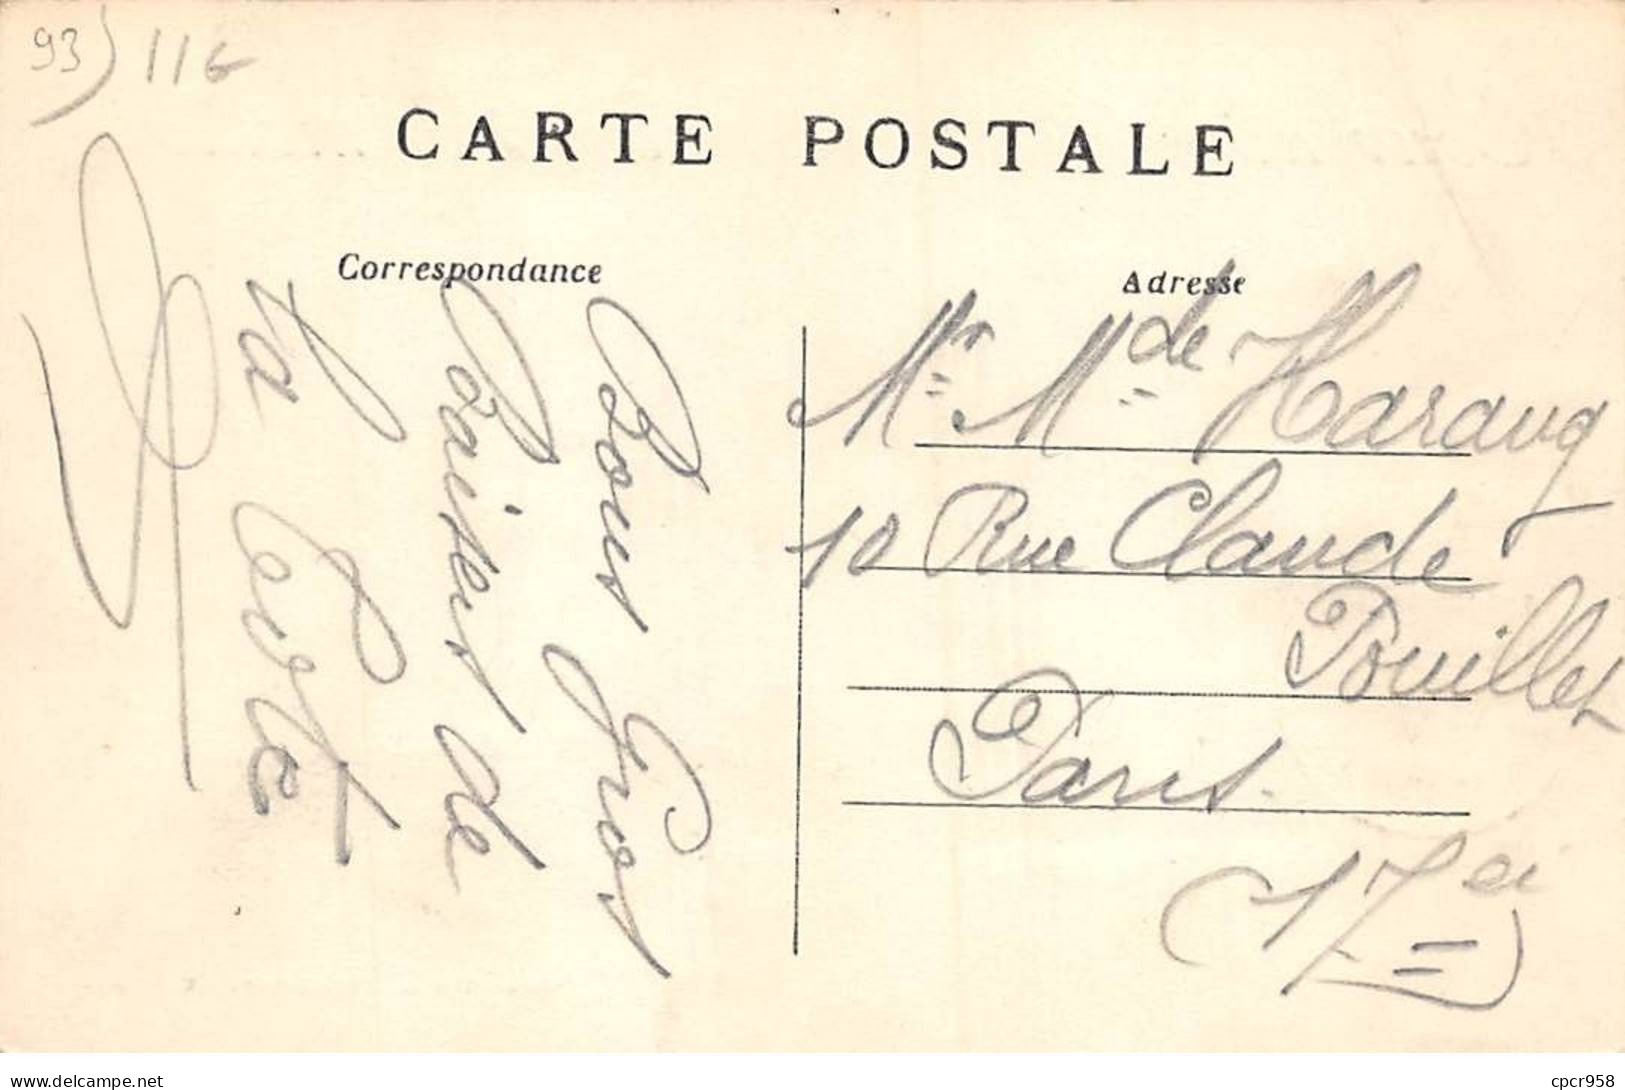 93) 116
CARTE POSTALE
Correspondance
Bons Gros
Baisers de
la
Adresse
Mr Mde Haraug
10 Rue Claude
Pouillet
Paris.
(17e)
delcampe.net
cpcr958